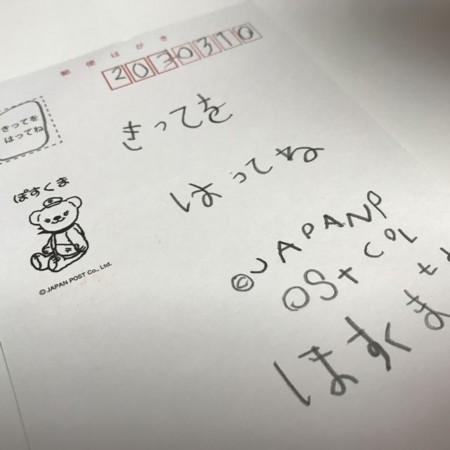 郵便はがき
2030310
きってを
はってね
ぽすくま
© JAPAN POST Co., Ltd.
きってを
はってね
©JAPANP
OSt COL
ほすくま